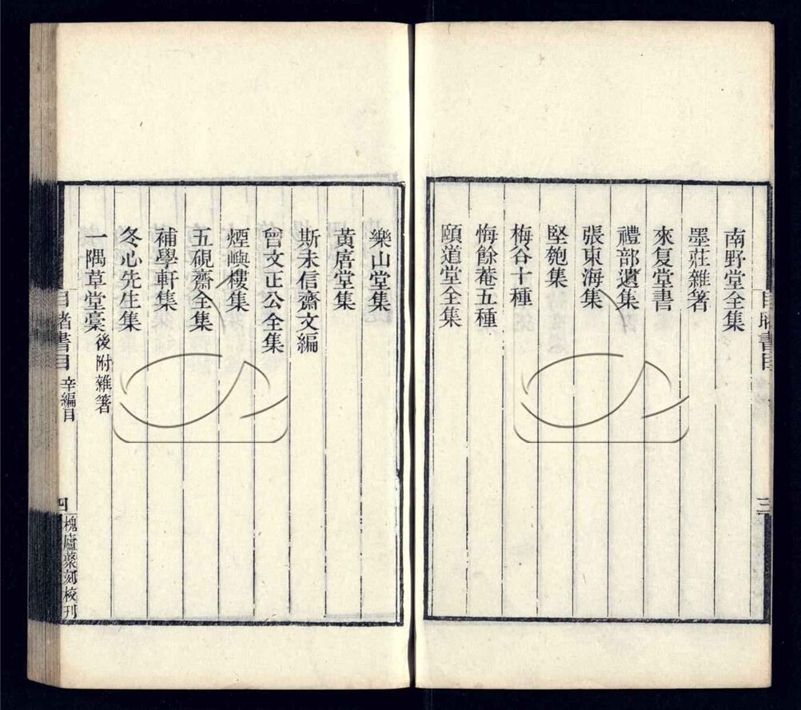 南野堂全集
墨莊雜著
來复堂書
禮部遺集
張東海集
堅匏集
梅谷十種
悔餘菴五種
頤道堂全集
書目
三
樂山堂集
黃唐堂集
斯未信齋文編
曾文正公全集
煙嶼樓集
五硯齋全集
補學軒集
冬心先生集
一隅草堂稾後附雜著
書目 辛編目
四
槐廬叢刻校刊